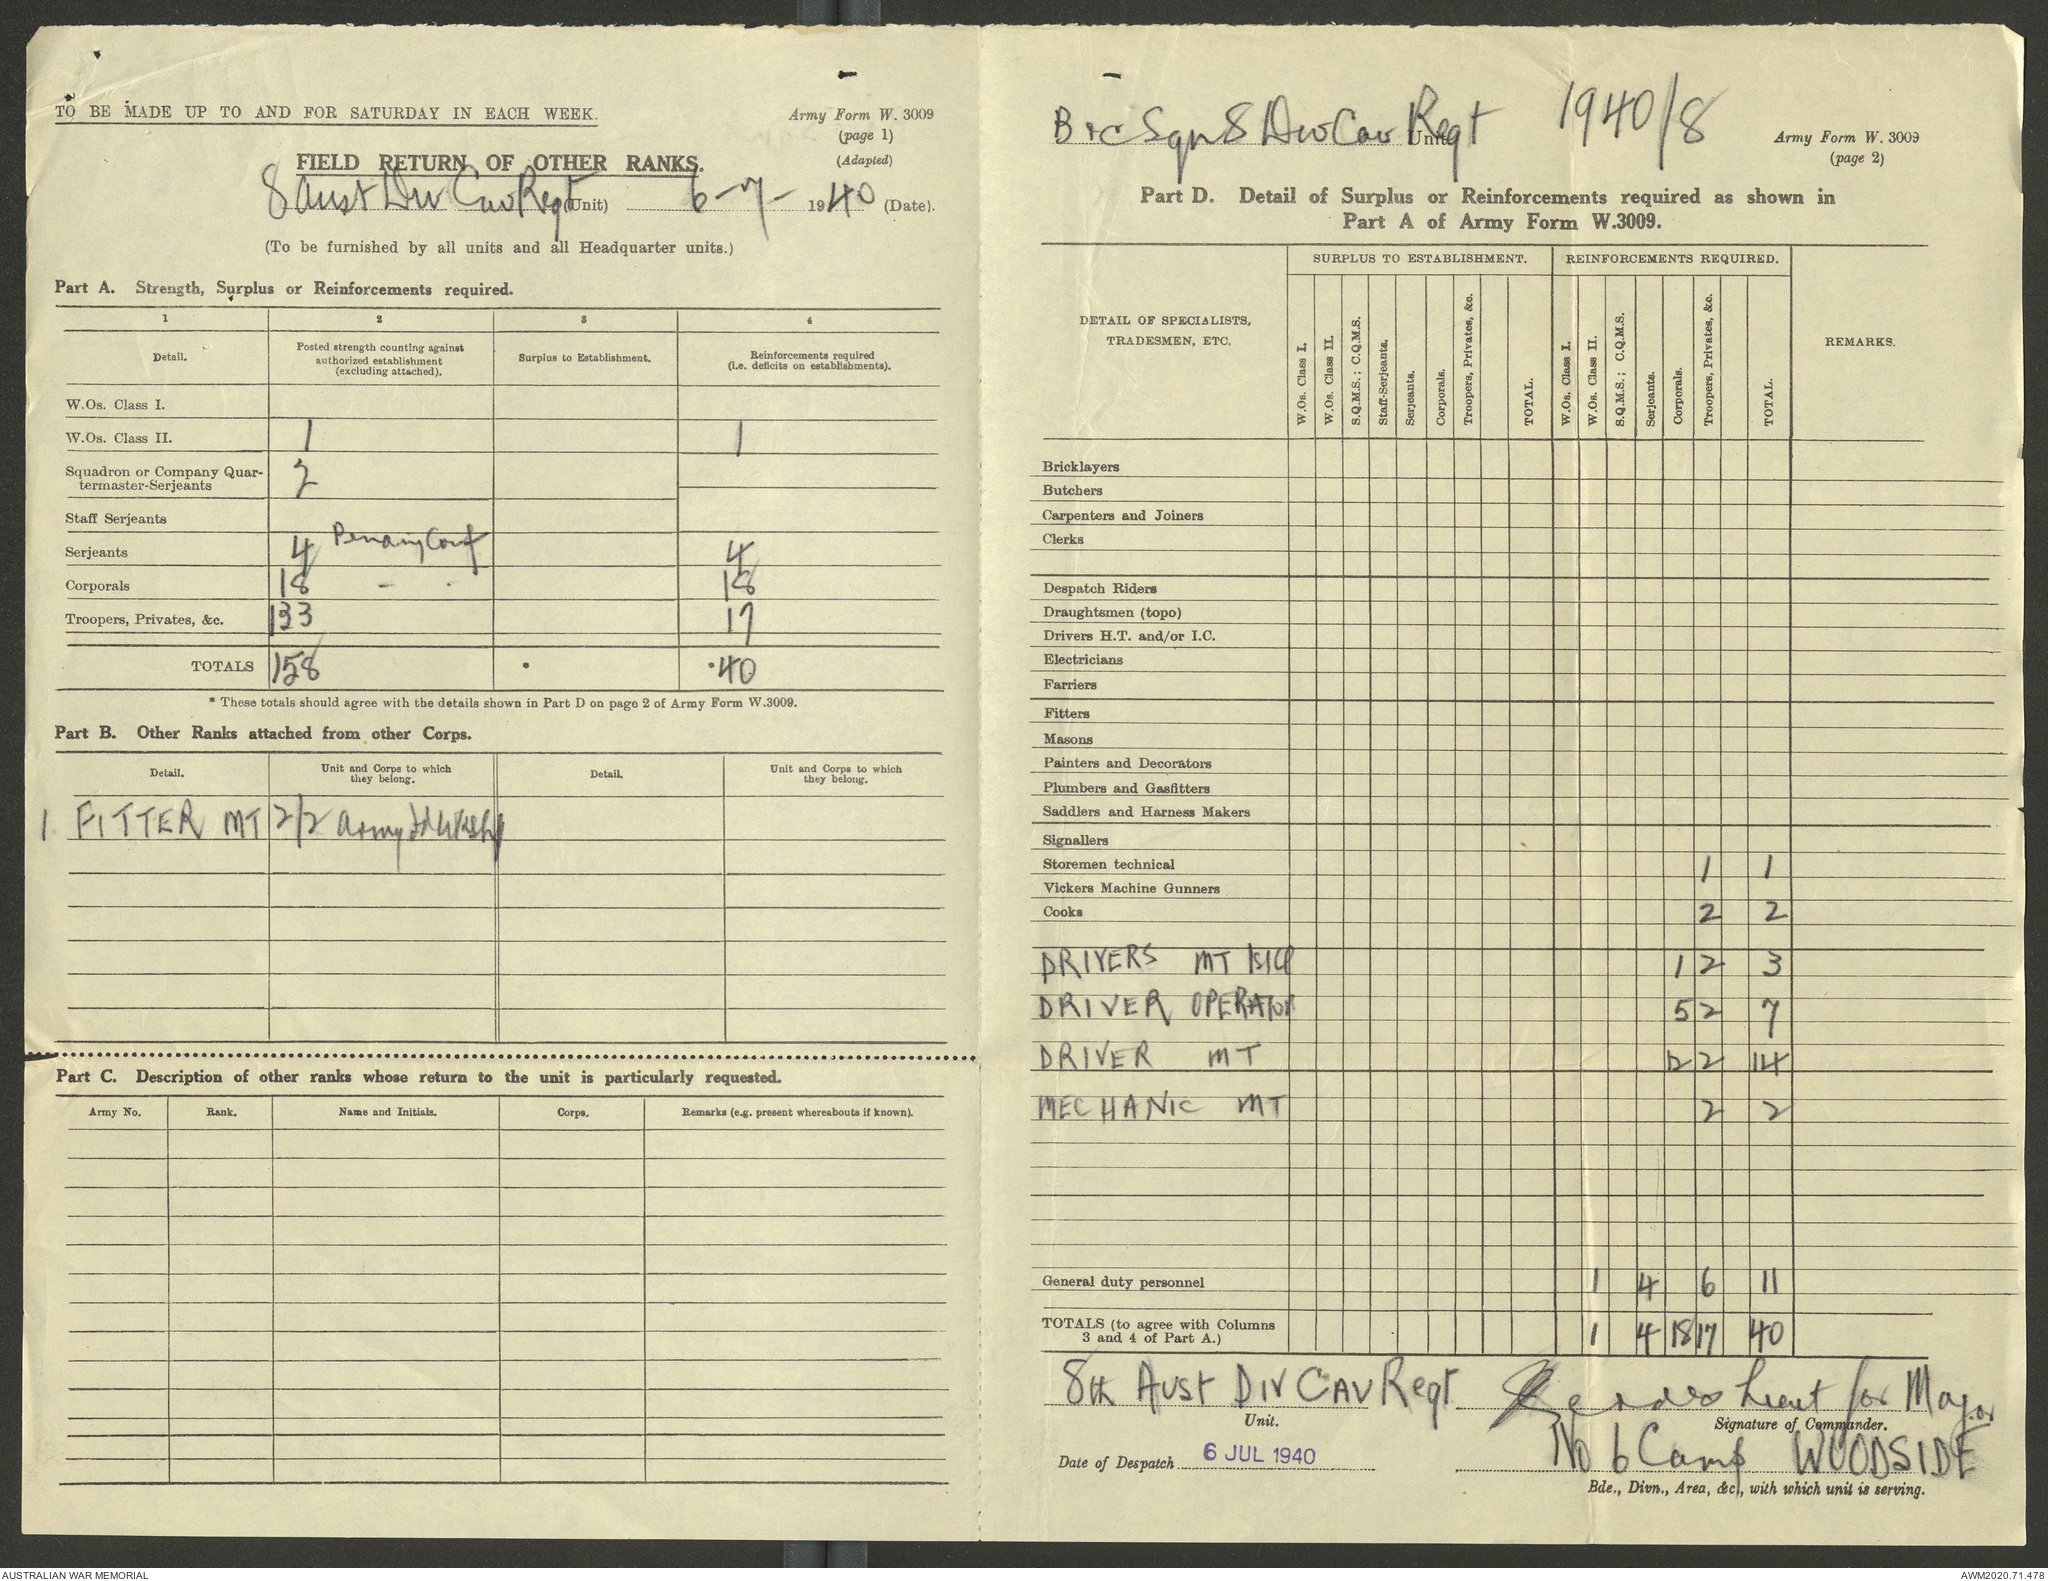 TO BE MADE UP TO AND FOR SATURDAY IN EACH WEEK.
Army Form W. 3009
(page 1)
(Adapted)
FIELD RETURN OF OTHER RANKS.
8 Aust Div Cav Regt (Unit) 6-7-1940 (Date).
(To be furnished by all units and all Headquarter units.)
Part A. Strength, Surplus or Reinforcements required.
1 2 3 4
Detail. Posted strength counting against authorized establishment (excluding attached). Surplus to Establishment. Reinforcements required (i.e. deficits on establishments).
W.Os. Class I.
W.Os. Class II. 1 1
Squadron or Company Quar-
termaster-Serjeants 2
Staff Serjeants
Serjeants 4 Pending Conf 4
Corporals 18 - - 18
Troopers, Privates, &c. 133 17
TOTALS 158 * *40
* These totals should agree with the details shown in Part D on page 2 of Army Form W.3009.
Part B. Other Ranks attached from other Corps.
Detail. Unit and Corps to which they belong. Detail. Unit and Corps to which they belong.
1 FITTER MT 2/2 Army Fd Wksh
Part C. Description of other ranks whose return to the unit is particularly requested.
Army No. Rank. Name and Initials. Corps. Remarks (e.g. present whereabouts if known).
B & C Sqn 8 Div Cav Regt Unit 1940/8
Army Form W. 3009
(page 2)
Part D. Detail of Surplus or Reinforcements required as shown in
Part A of Army Form W.3009.
DETAIL OF SPECIALISTS, TRADESMEN, ETC. SURPLUS TO ESTABLISHMENT. REINFORCEMENTS REQUIRED. REMARKS.
W.Os. Class I. W.Os. Class II. S.Q.M.S.; C.Q.M.S. Staff-Serjeants. Serjeants. Corporals. Troopers, Privates, &c. TOTAL. W.Os. Class I. W.Os. Class II. S.Q.M.S.; C.Q.M.S. Serjeants. Corporals. Troopers, Privates, &c. TOTAL.
Bricklayers
Butchers
Carpenters and Joiners
Clerks
Despatch Riders
Draughtsmen (topo)
Drivers H.T. and/or I.C.
Electricians
Farriers
Fitters
Masons
Painters and Decorators
Plumbers and Gasfitters
Saddlers and Harness Makers
Signallers
Storemen technical 1 1
Vickers Machine Gunners
Cooks 2 2
DRIVERS MT 1 2 3
DRIVER OPERATOR 5 2 7
DRIVER MT 12 2 14
MECHANIC MT 2 2
General duty personnel 1 4 6 11
TOTALS (to agree with Columns
3 and 4 of Part A.) 1 4 18 17 40
8th AUST DIV CAV Regt Lieut for Major
Unit. Signature of Commander.
No 6 Camp WOODSIDE
Date of Despatch 6 JUL 1940
Bde., Divn., Area, &c., with which unit is serving.
AUSTRALIAN WAR MEMORIAL
AWM2020.71.478